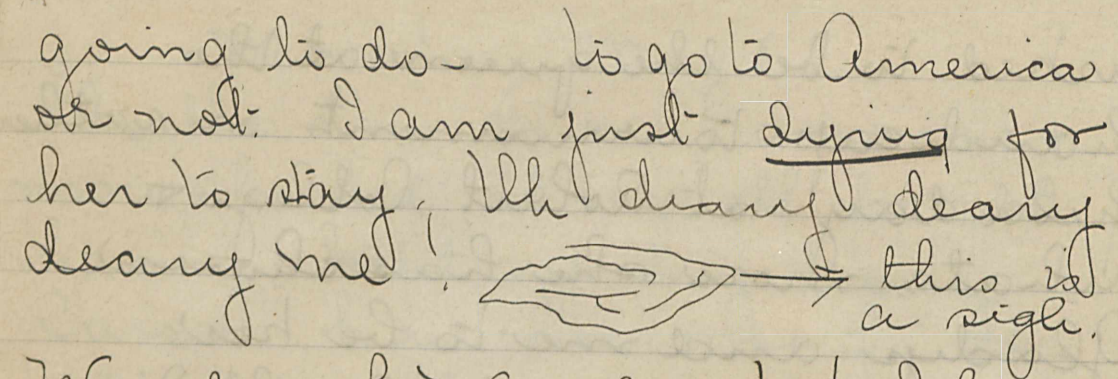 going to do - to go to America
or not. I am just dying for
her to stay! Uh deary deary
deary me! this is
a sigh.